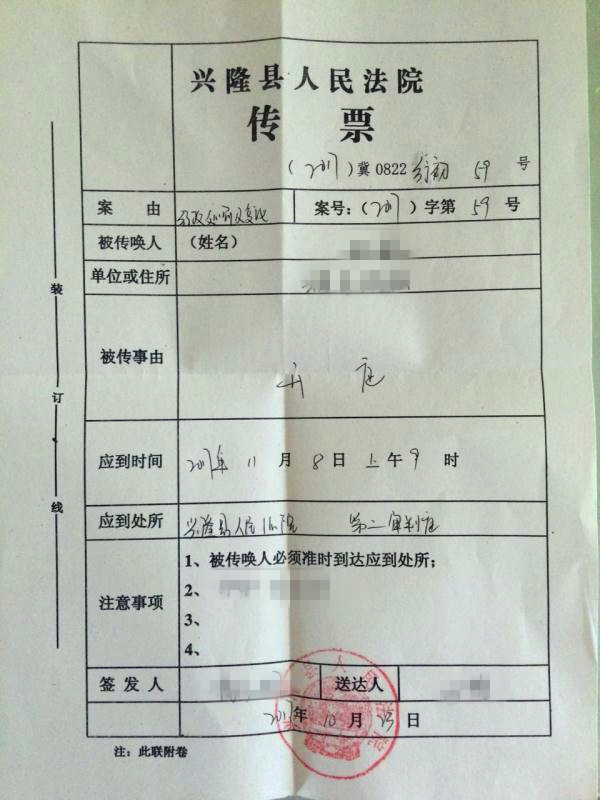 兴隆县人民法院
传 票
（2017）冀 0822 行初 59 号
案 由 案号：（2017）字第 59 号
被传唤人 （姓名）
单位或住所
被传事由 开 庭
应到时间 2017年 11 月 8 日 上午 9 时
应到处所 兴隆县人民法院 第二审判庭
注意事项 1、被传唤人必须准时到达应到处所；
2、
3、
4、
签发人 送达人
2017年 10 月 23 日
注：此联附卷
装
订
线